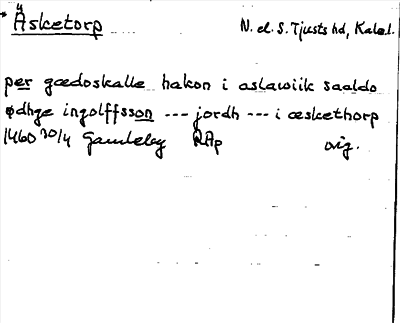 * Äsketorp N. el. S. Tjusts hd, Kalml.
per gædoskalle hakon i aslawiik saaldo
ødhge ingolffsson --- jordh --- i æskethorp
1460 30/4 Gamleby RAp orig.